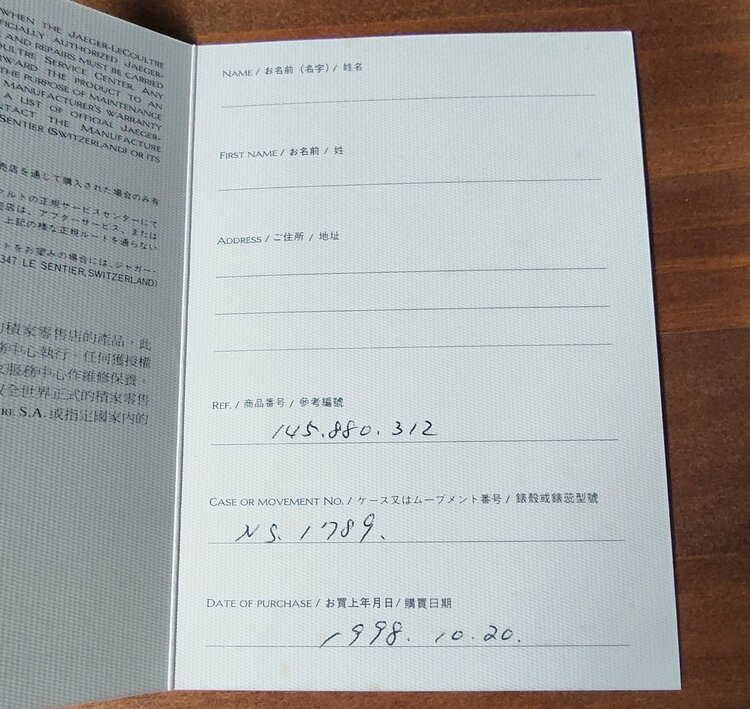 WHEN THE JAEGER-LECOULTRE
OFFICIALLY AUTHORIZED JAEGER-
AND REPAIRS MUST BE CARRIED
SERVICE CENTER. ANY
THE PRODUCT TO AN
THE PURPOSE OF MAINTENANCE
MANUFACTURER'S WARRANTY
A LIST OF OFFICIAL JAEGER-
CONTACT THE MANUFACTURE
SENTIER (SWITZERLAND) OR ITS
売店を通して購入された場合のみ有
クルトの正規サービスセンターにて
売店は、アフターサービス、または
上記の様な正規ルートを通らない
トをお望みの場合には、ジャガー・
347 LE SENTIER, SWITZERLAND)
積家零售店的產品。此
務中心執行。任何獲授權
服務中心作維修保養。
全世界正式的積家零售
S.A. 或指定國家內的
NAME / お名前 (名字) / 姓名
FIRST NAME / お名前 / 姓
ADDRESS / ご住所 / 地址
REF. / 商品番号 / 參考編號
145.880.312
CASE OR MOVEMENT NO. / ケース又はムーブメント番号 / 錶殼或錶蕊型號
NS. 1789.
DATE OF PURCHASE / お買上年月日 / 購買日期
1998. 10.20.